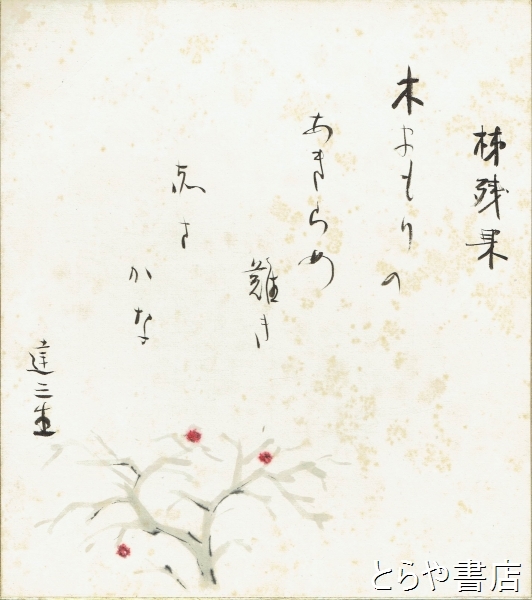 柹残果
木まもりの
あきらめ
難き
赤さ
かな
達三生
とらや書店